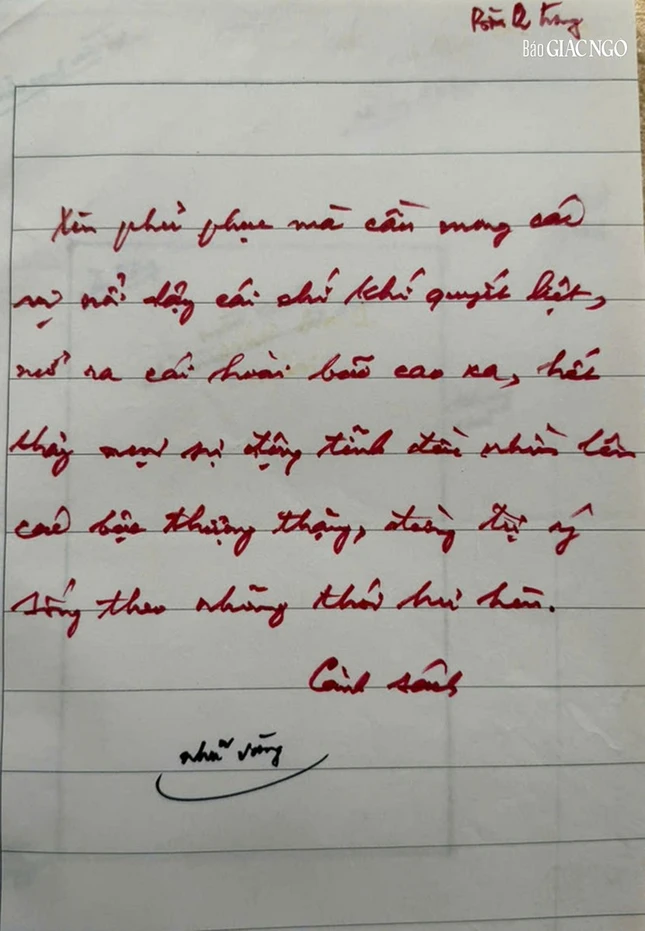 Báo GIÁC NGỘ
Xin phủ phục mà cần mong các
vị nổi dậy cái chí khí quyết liệt,
mở ra cái hoài bão cao xa, hết
thảy mọi sự động tĩnh đều nhìn lên
các bậc thượng thặng, đừng tự ý
sống theo những thói hư hèn.
Cảnh sách